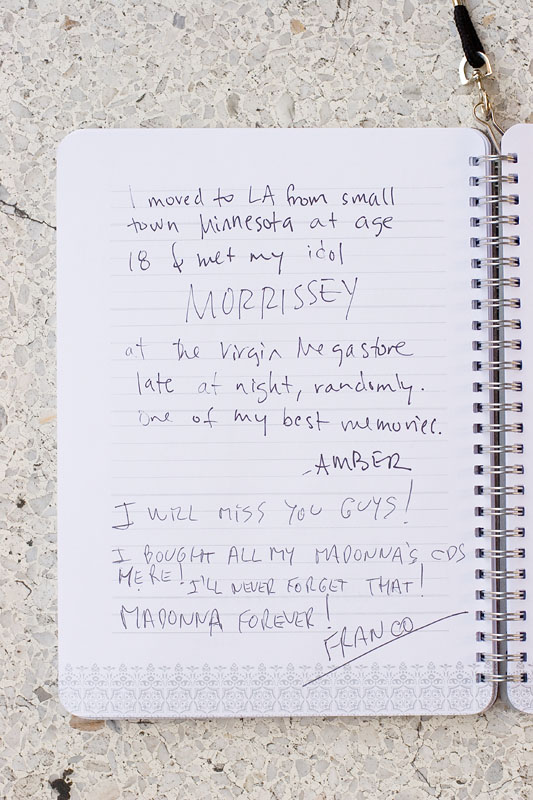 I moved to LA from small
town Minnesota at age
18 & met my idol
MORRISSEY
at the Virgin Megastore
late at night, randomly.
One of my best memories.
-AMBER
I WILL MISS YOU GUYS!
I BOUGHT ALL MY MADONNA'S CDS
HERE! I'LL NEVER FORGET THAT!
MADONNA FOREVER!
FRANCO